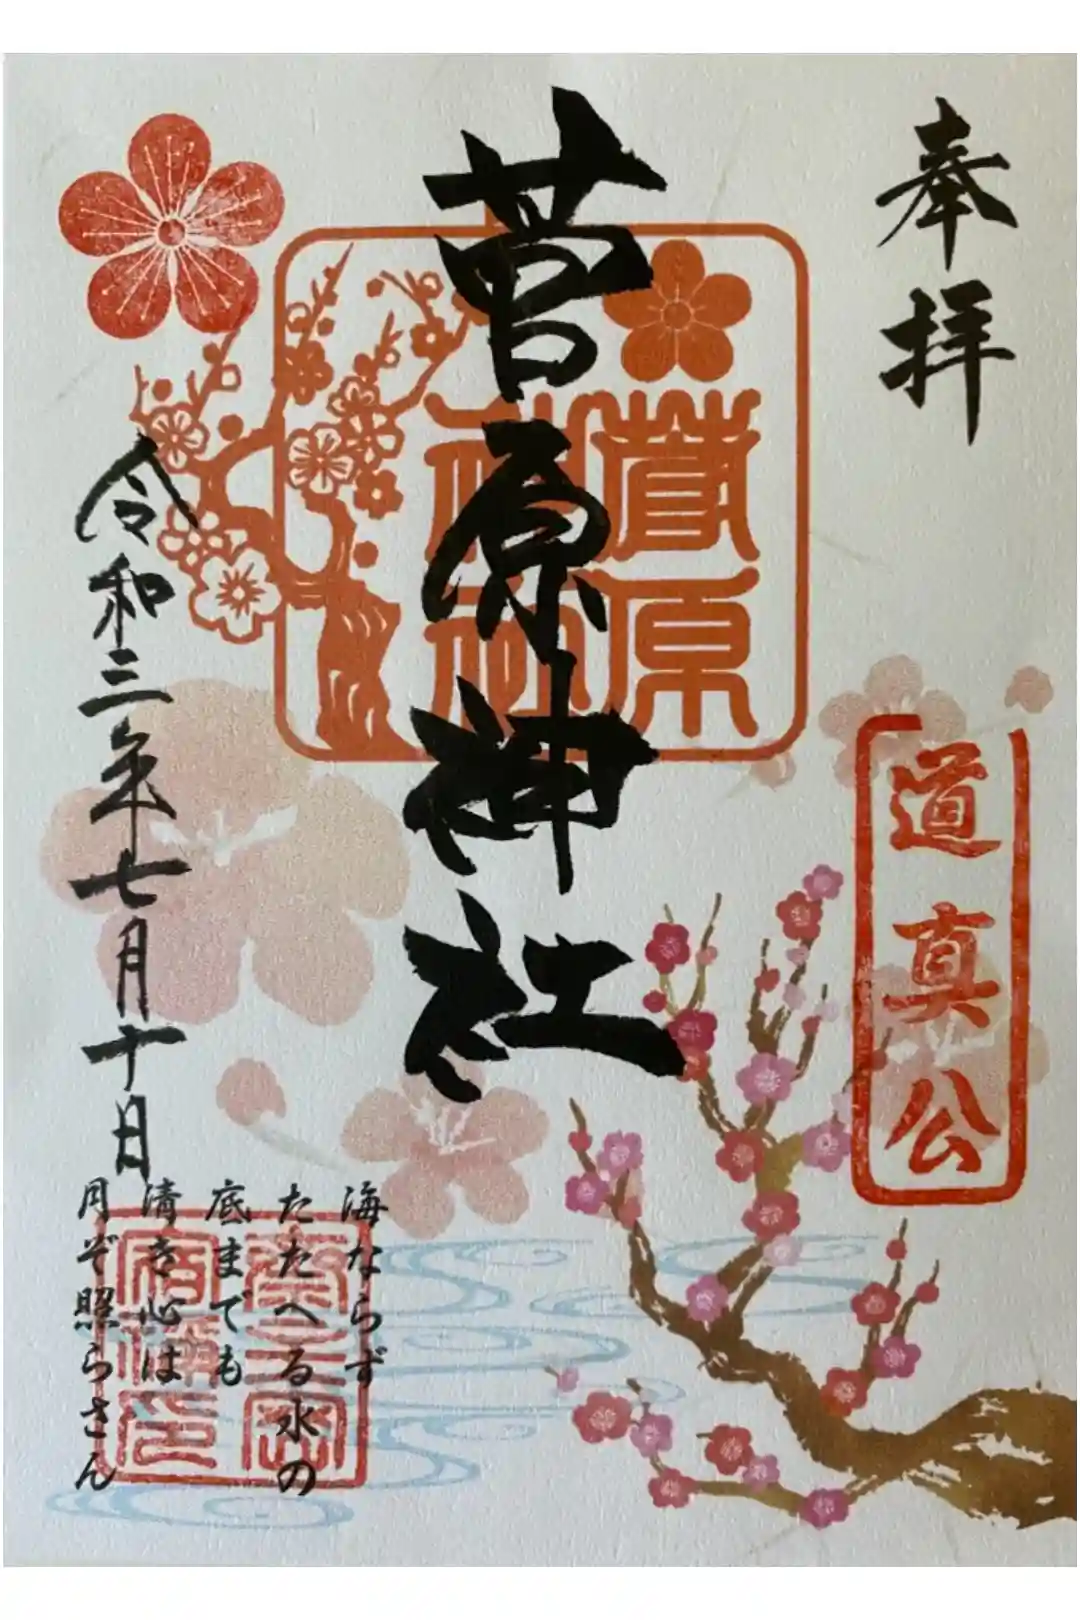 奉拝
道真公
菅原神社
菅原
神社
令和三年七月十日
海ならず
たたへる水の
底までも
清き心は
月ぞ照らさん